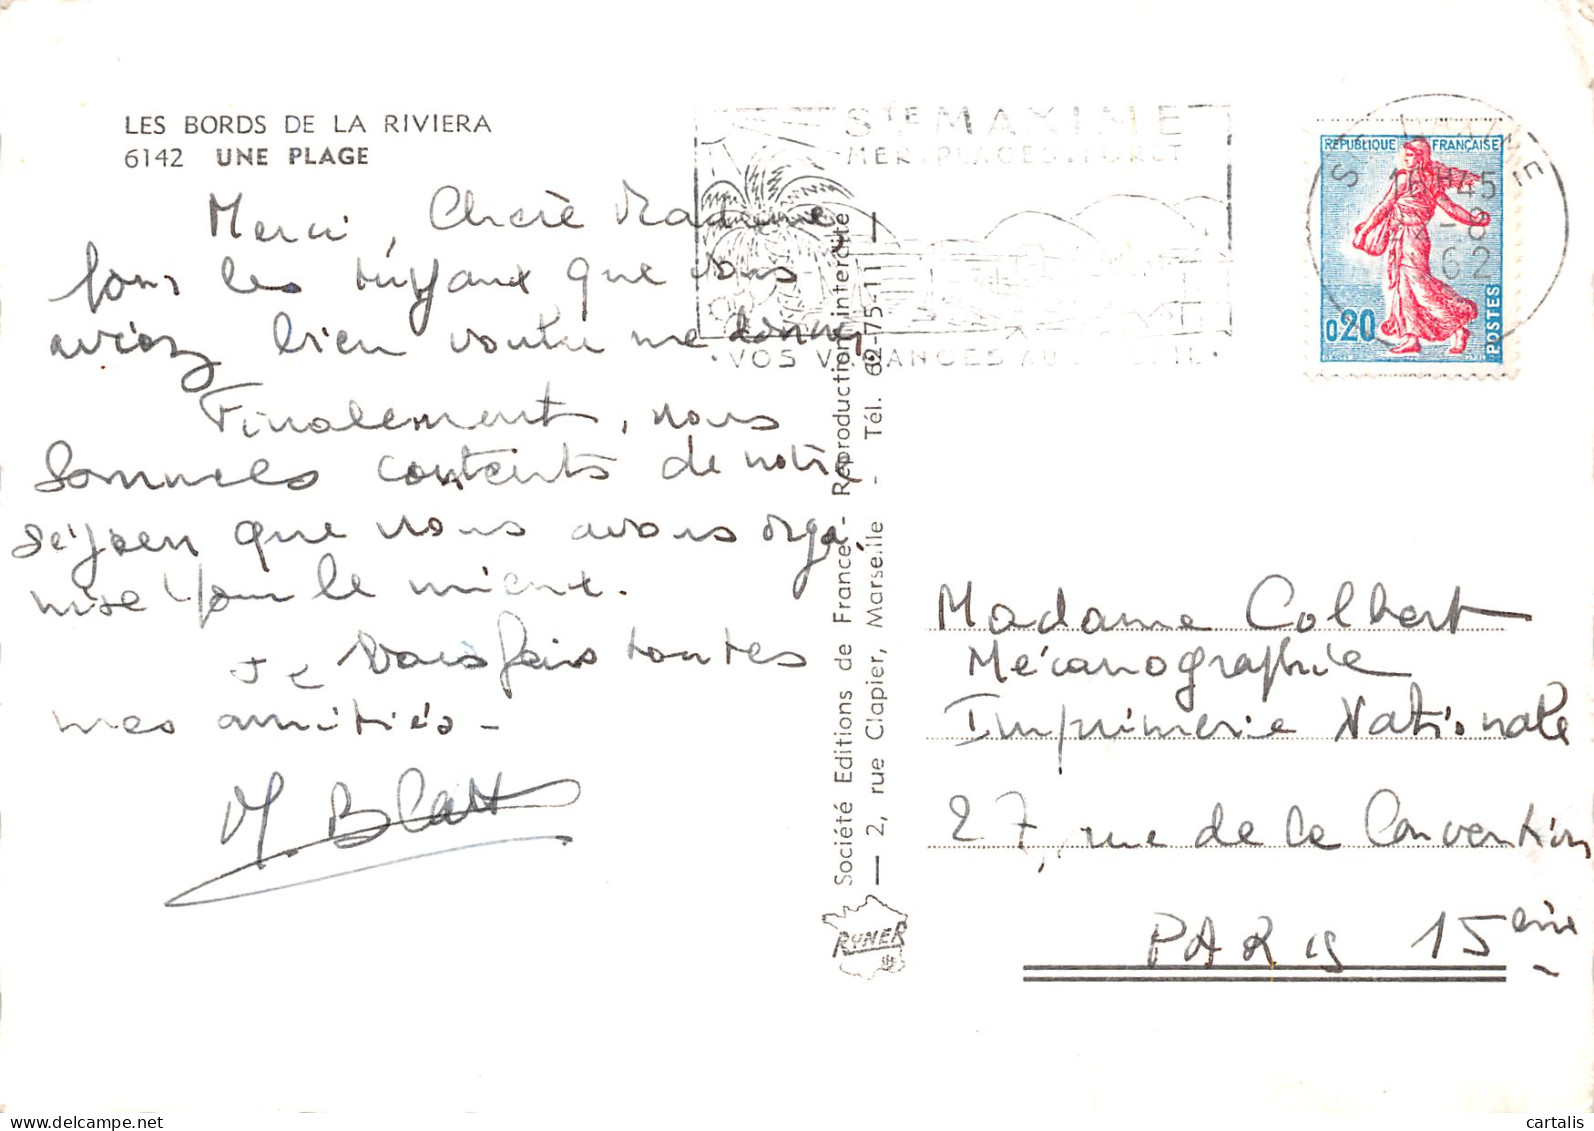 LES BORDS DE LA RIVIERA
6142 UNE PLAGE
Merci, Chère Madame,
pour les tuyaux que vous
aviez bien voulu me donner
Finalement, nous
sommes contents de notre
séjour que nous avons orga
nisé pour le mieux.
Je vous fais toutes
mes amitiés -
M. Blatt
Société Editions de France - Reproduction interdite
2, rue Clapier, Marseille - Tél. 62-75-11
RYNER
STE MAXIME
MER. PLAGES. FORET
VOS VACANCES AU SOLEIL
STE MAXIME
H45
-8
62
REPUBLIQUE FRANÇAISE
0,20
POSTES
Madame Colbert
Mécanographie
Imprimerie Nationale
27, rue de la Convention
PARIS 15ème
cartalis